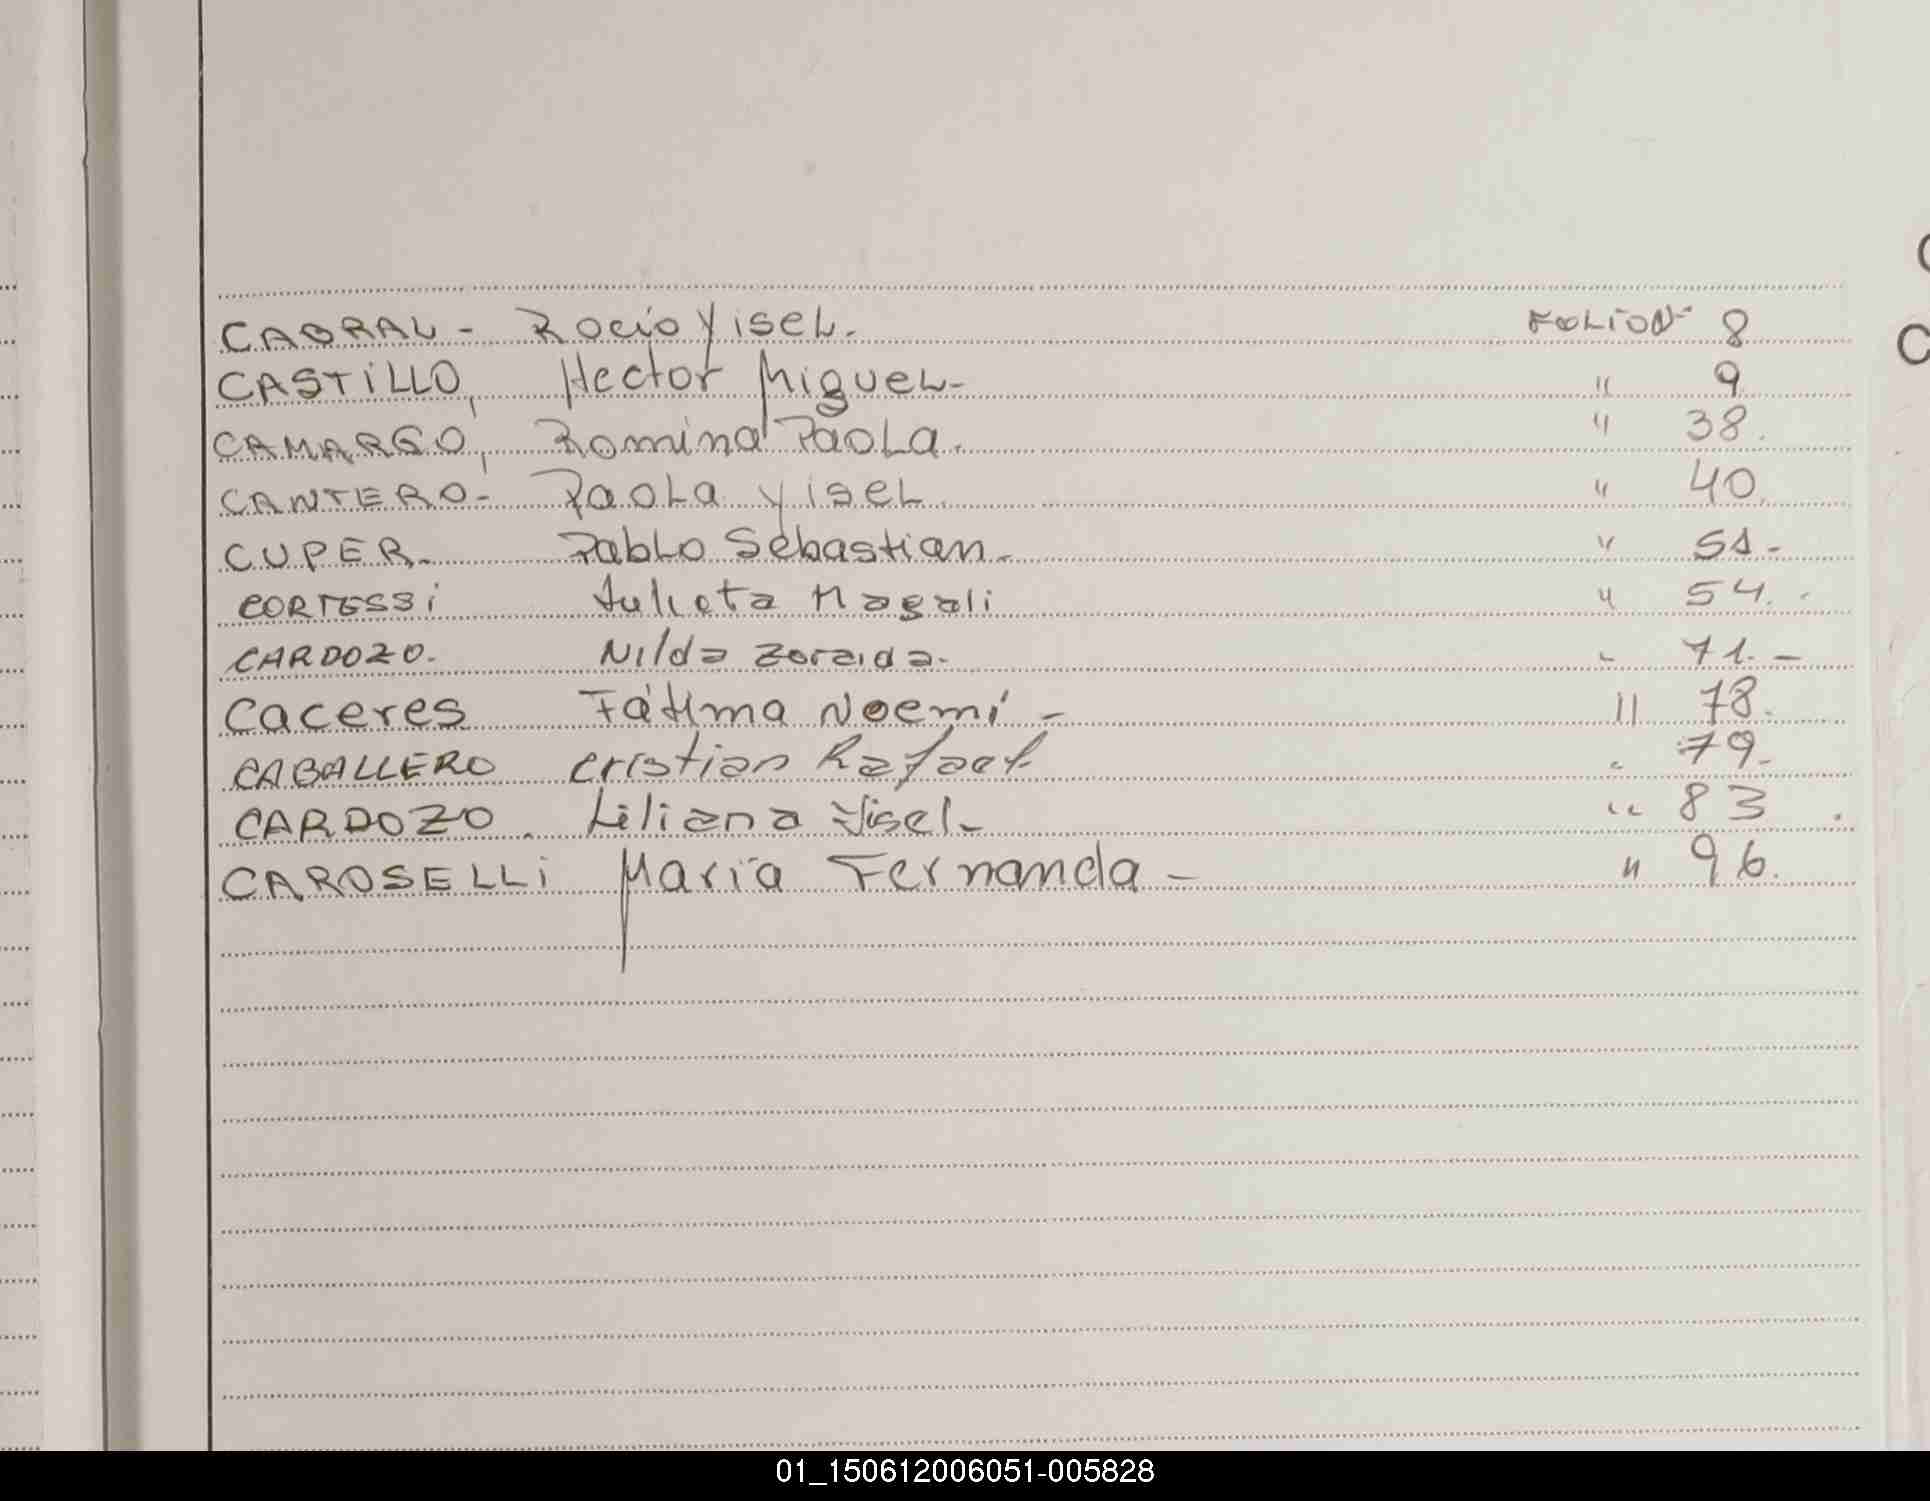 CABRAL - Rocio Yisel. FOLIO Nº 8
CASTiLLO, Hector Miguel- " 9
CAMARGO, Romina Paola. " 38.
CANTERO- Paola Yisel. " 40.
CUPER. Pablo Sebastian. " 51.-
CORTESSi Julieta Magali " 54. -
CARDOZO. Nilda Zoraida. " 71. -
Caceres Fátima Noemí - " 78.
CABALLERO Cristian Rafael " 79.-
CARDOZO. Liliana Yisel- " 83 .
CAROSELLi María Fernanda - " 96.
01_150612006051-005828